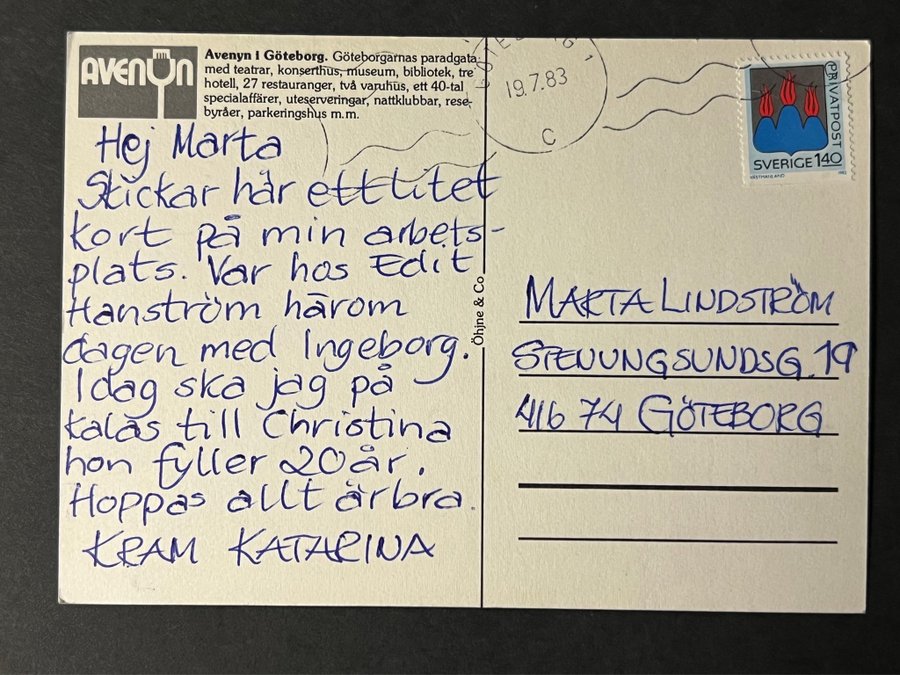 AVENYN
Avenyn i Göteborg. Göteborgarnas paradgata
med teatrar, konserthus, museum, bibliotek, tre
hotell, 27 restauranger, två varuhus, ett 40-tal
specialaffärer, uteserveringar, nattklubbar, rese-
byråer, parkeringshus m.m.
Hej Marta
Skickar här ett litet
kort på min arbets-
plats. Var hos Edit
Hanström härom
dagen med Ingeborg.
Idag ska jag på
kalas till Christina
hon fyller 20 år.
Hoppas allt är bra.
KRAM KATARINA
Öhjne & Co
19.7.83
C
PRIVATPOST
SVERIGE 140
VÄSTMANLAND
1982
MARTA LINDSTRÖM
STENUNGSUNDSG. 19
416 74 GÖTEBORG